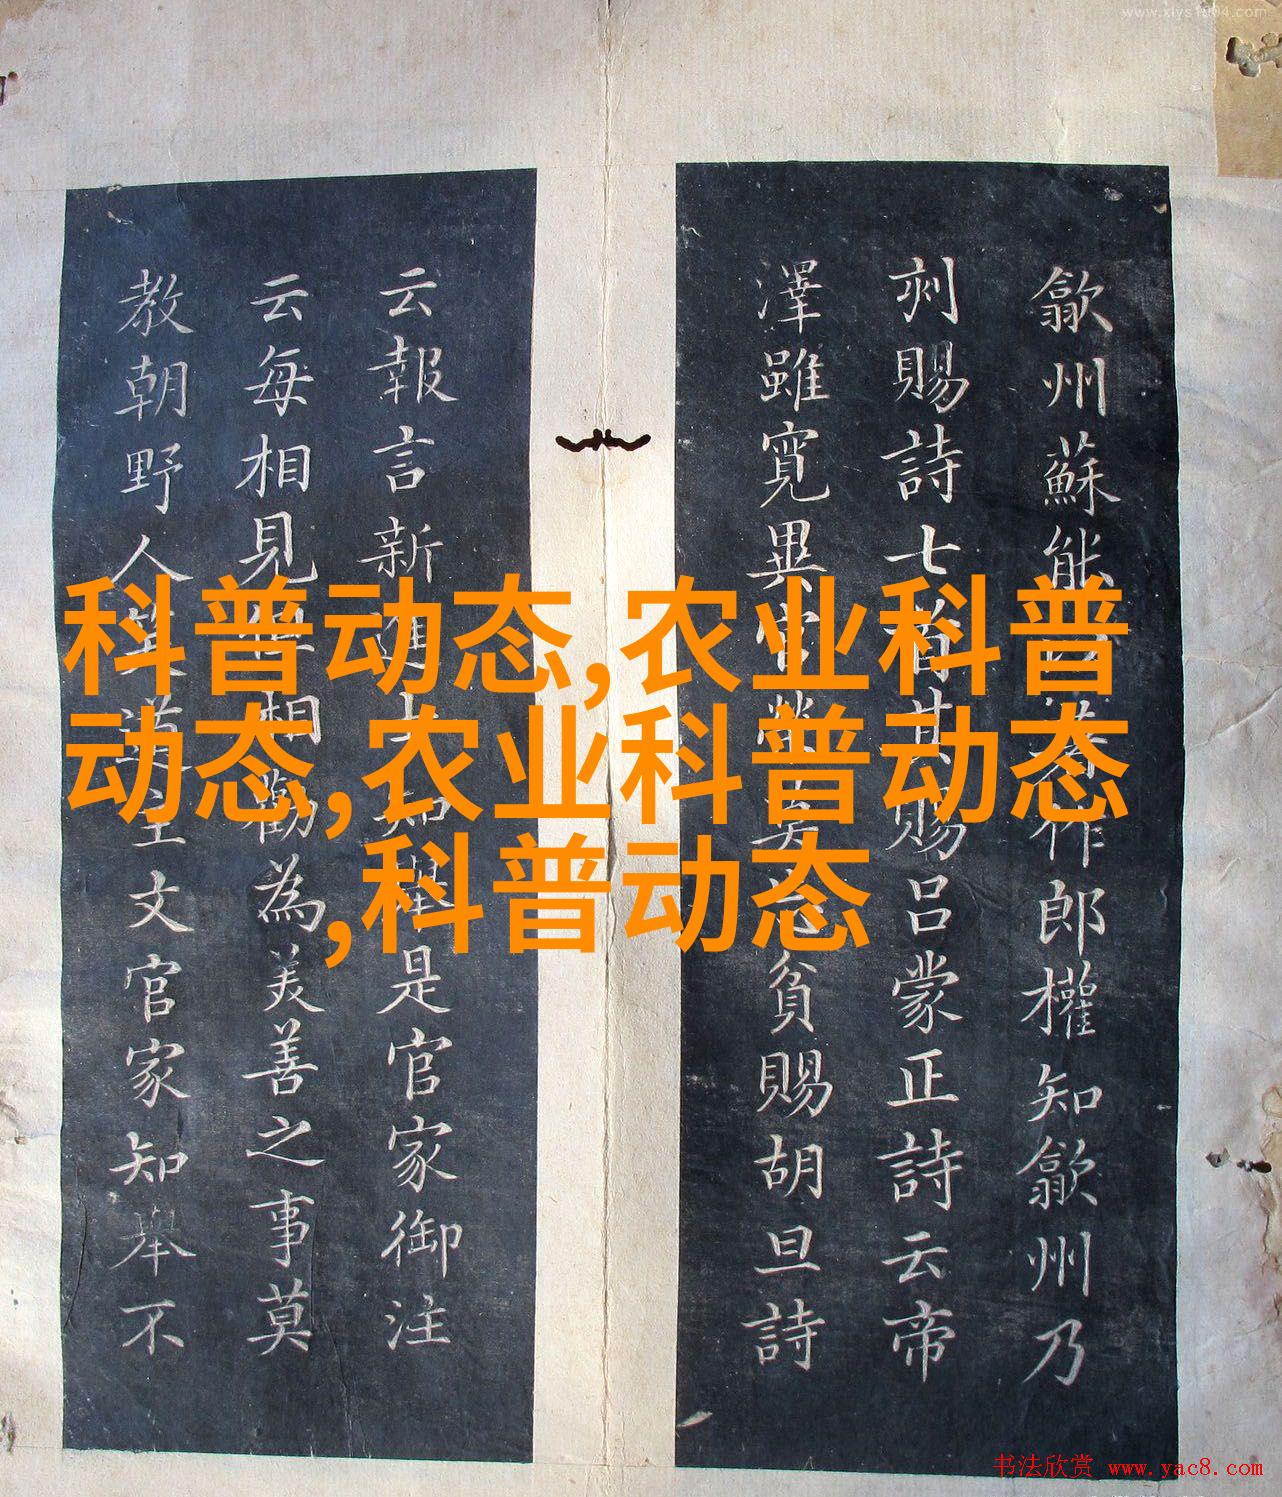 www.xiys1004.com
歙州蘇能作郎權知歙州乃
刻賜詩七首其賜呂蒙正詩云帝
澤雖寬異官貧賜胡旦詩
云報言新進士知舉是官家御注
云每相見相勸為美善之事莫
教朝野人道主文官家知舉不
科普动态,农业科普
动态,农业科普动态
,科普动态
书法欣赏 www.yac8.com